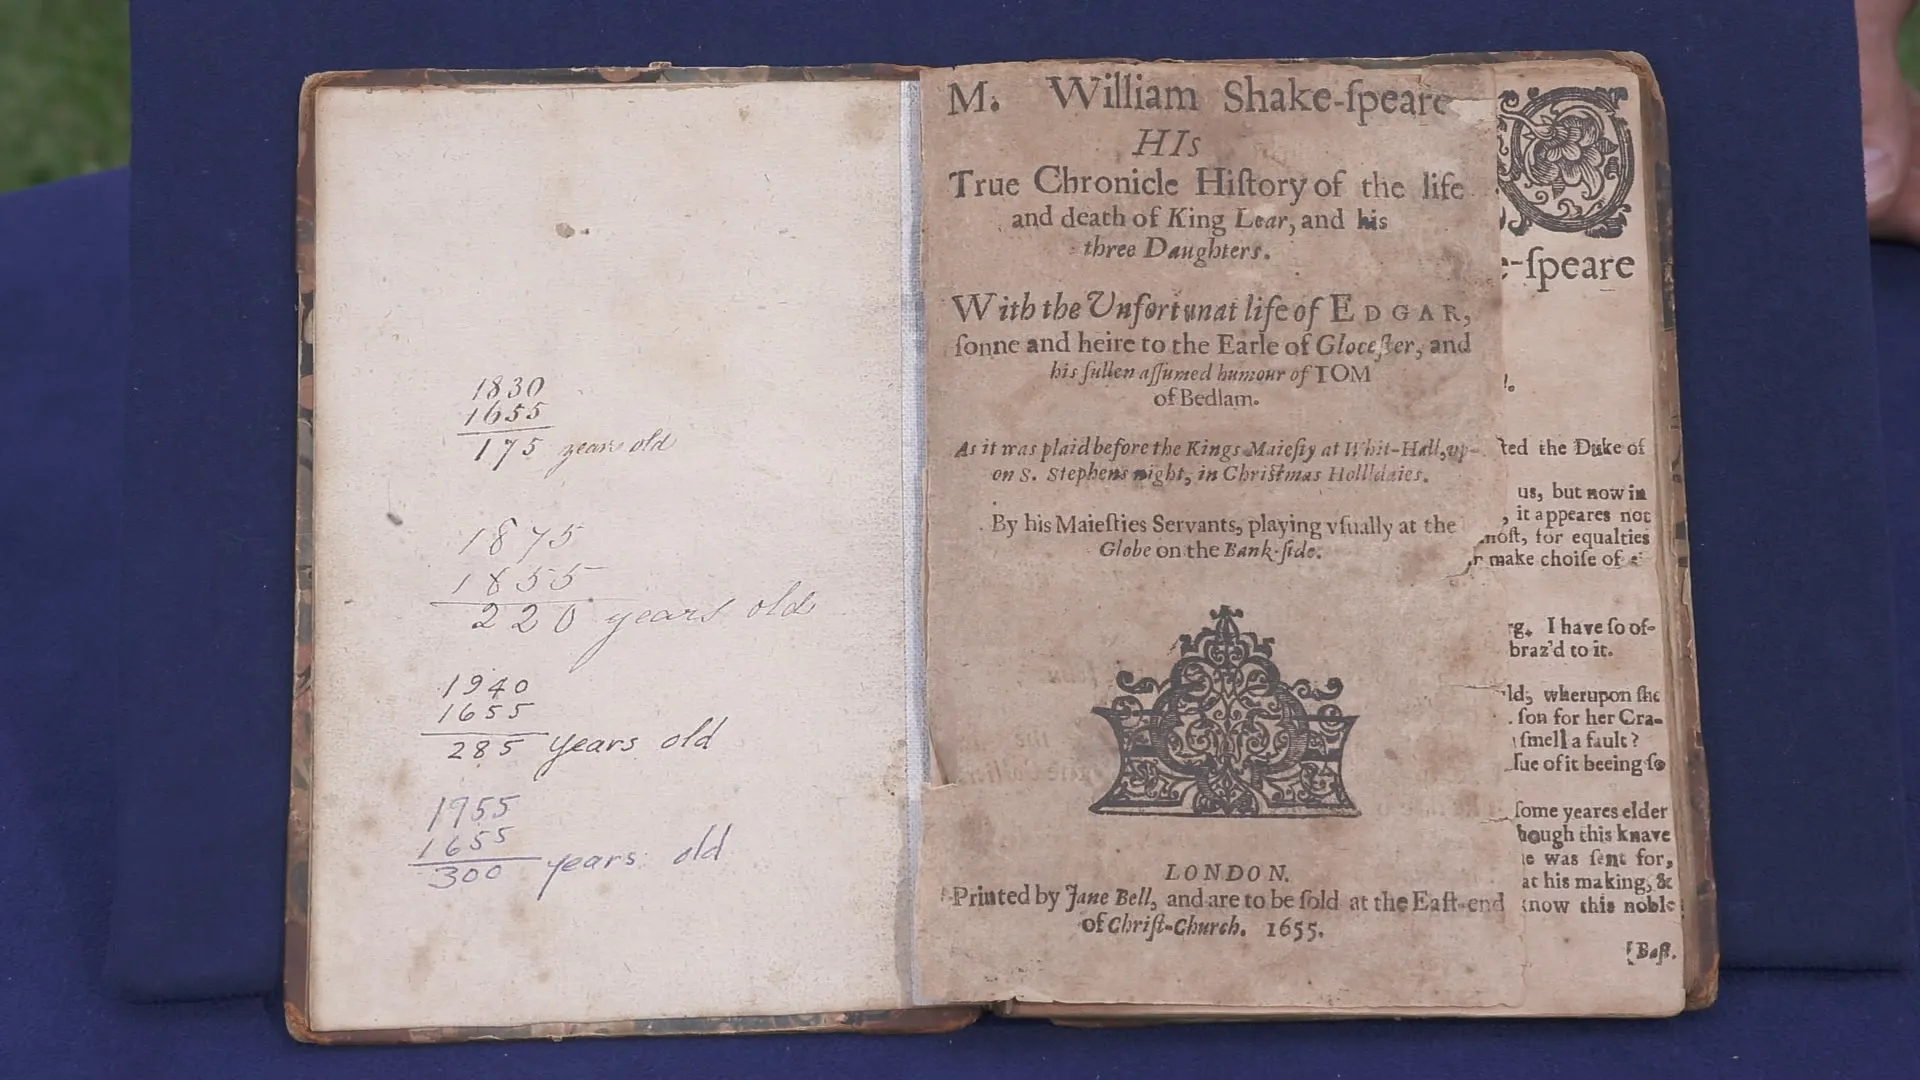 1830
1655
175 years old
1875
1655
220 years old
1940
1655
285 years old
1955
1655
300 years old
M. William Shake-ſpeare
HIs
True Chronicle Hiſtory of the life
and death of King Lear, and his
three Daughters.
With the Unfortunat life of EDGAR,
ſonne and heire to the Earle of Gloceſter, and
his ſullen aſſumed humour of TOM
of Bedlam.
As it was plaid before the Kings Maieſty at Whit-Hall, up-
on S. Stephens night, in Chriſtmas Hollidaies.
By his Maieſties Servants, playing vſually at the
Globe on the Bank-ſide.
LONDON.
Printed by Jane Bell, and are to be ſold at the Eaſt-end
of Chriſt-Church. 1655.
e-ſpeare
ted the Duke of
us, but now in
, it appeares not
moſt, for equalties
make choiſe of
I have ſo of-
braz'd to it.
wherupon ſhe
ſon for her Cra-
ſmell a fault?
ſue of it beeing ſo
ſome yeares elder
though this knave
e was ſent for,
at his making, &
know this noble
[Baſt.